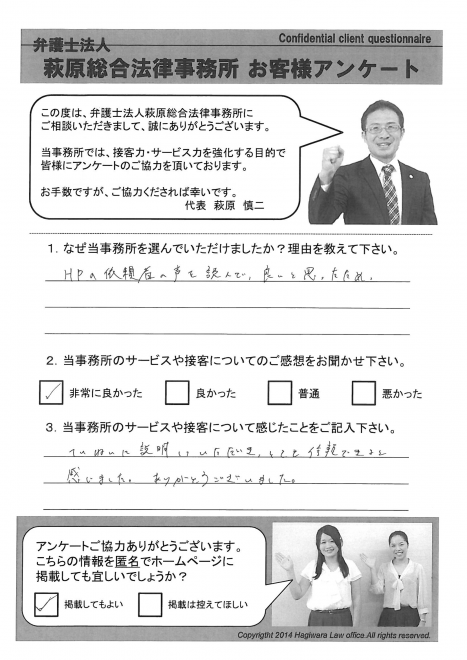 Confidential client questionnaire
弁護士法人
萩原総合法律事務所 お客様アンケート
この度は、弁護士法人萩原総合法律事務所に
ご相談いただきまして、誠にありがとうございます。
当事務所では、接客力・サービス力を強化する目的で
皆様にアンケートのご協力を頂いております。
お手数ですが、ご協力くだされば幸いです。
代表 萩原 慎二
1. なぜ当事務所を選んでいただけましたか？理由を教えて下さい。
HPの依頼者の声を読んで、良いと思ったため。
2. 当事務所のサービスや接客についてのご感想をお聞かせ下さい。
非常に良かった 良かった 普通 悪かった
3. 当事務所のサービスや接客について感じたことをご記入下さい。
ていねいに説明していただき、とても信頼できると
感じました。 ありがとうございました。
アンケートご協力ありがとうございます。
こちらの情報を匿名でホームページに
掲載しても宜しいでしょうか？
掲載してもよい 掲載は控えてほしい
Copyritght 2014 Hagiwara Law office.All rights reserved.